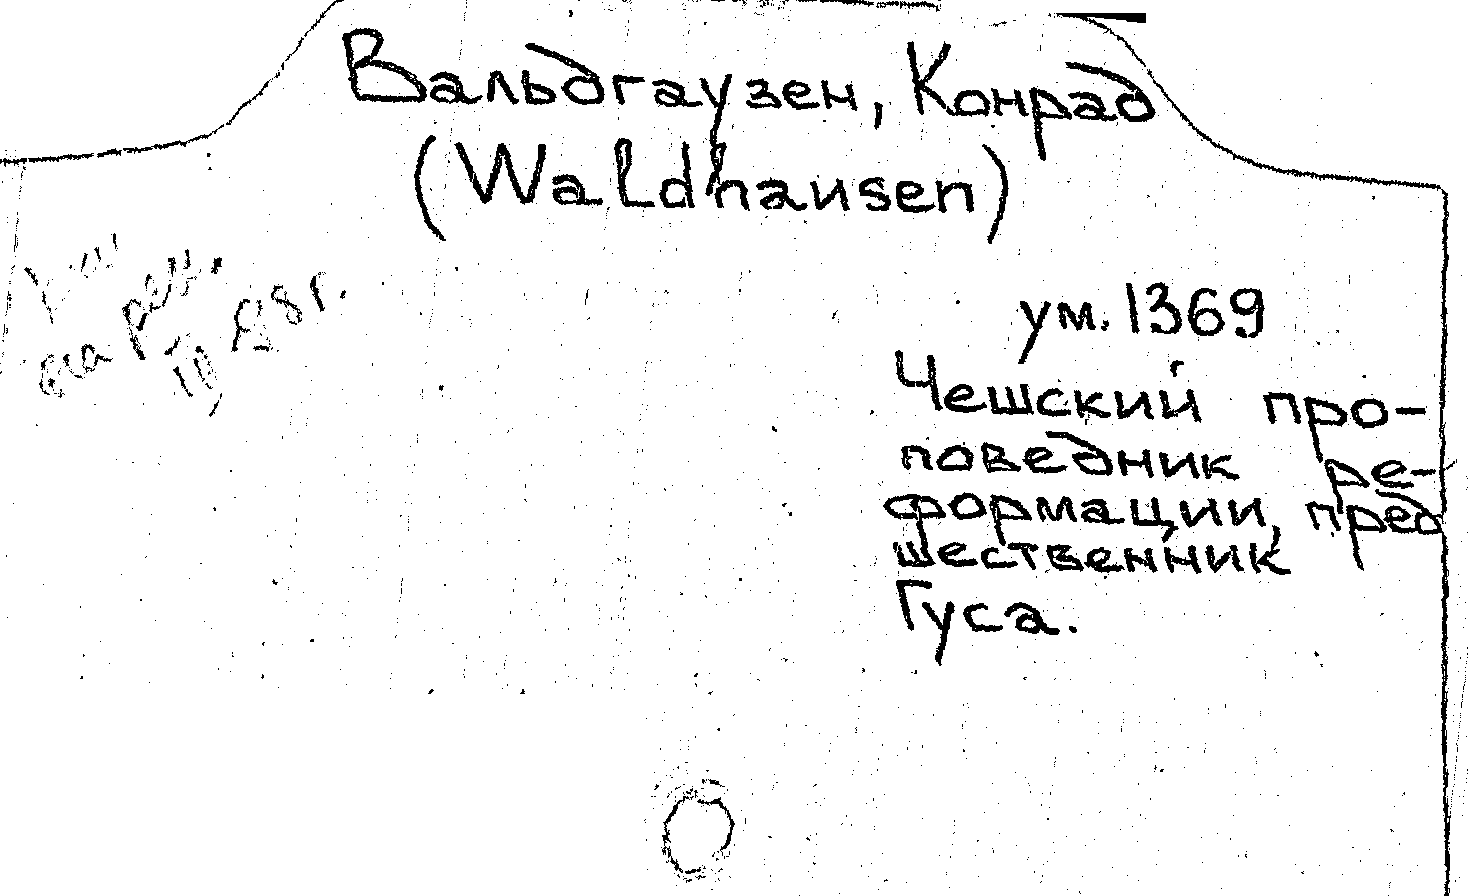 Вальдгаузен, Конрад
(Waldhausen)
ум. 1369
Чешский про-
поведник ре-
формации, пред
шественник
Гуса.